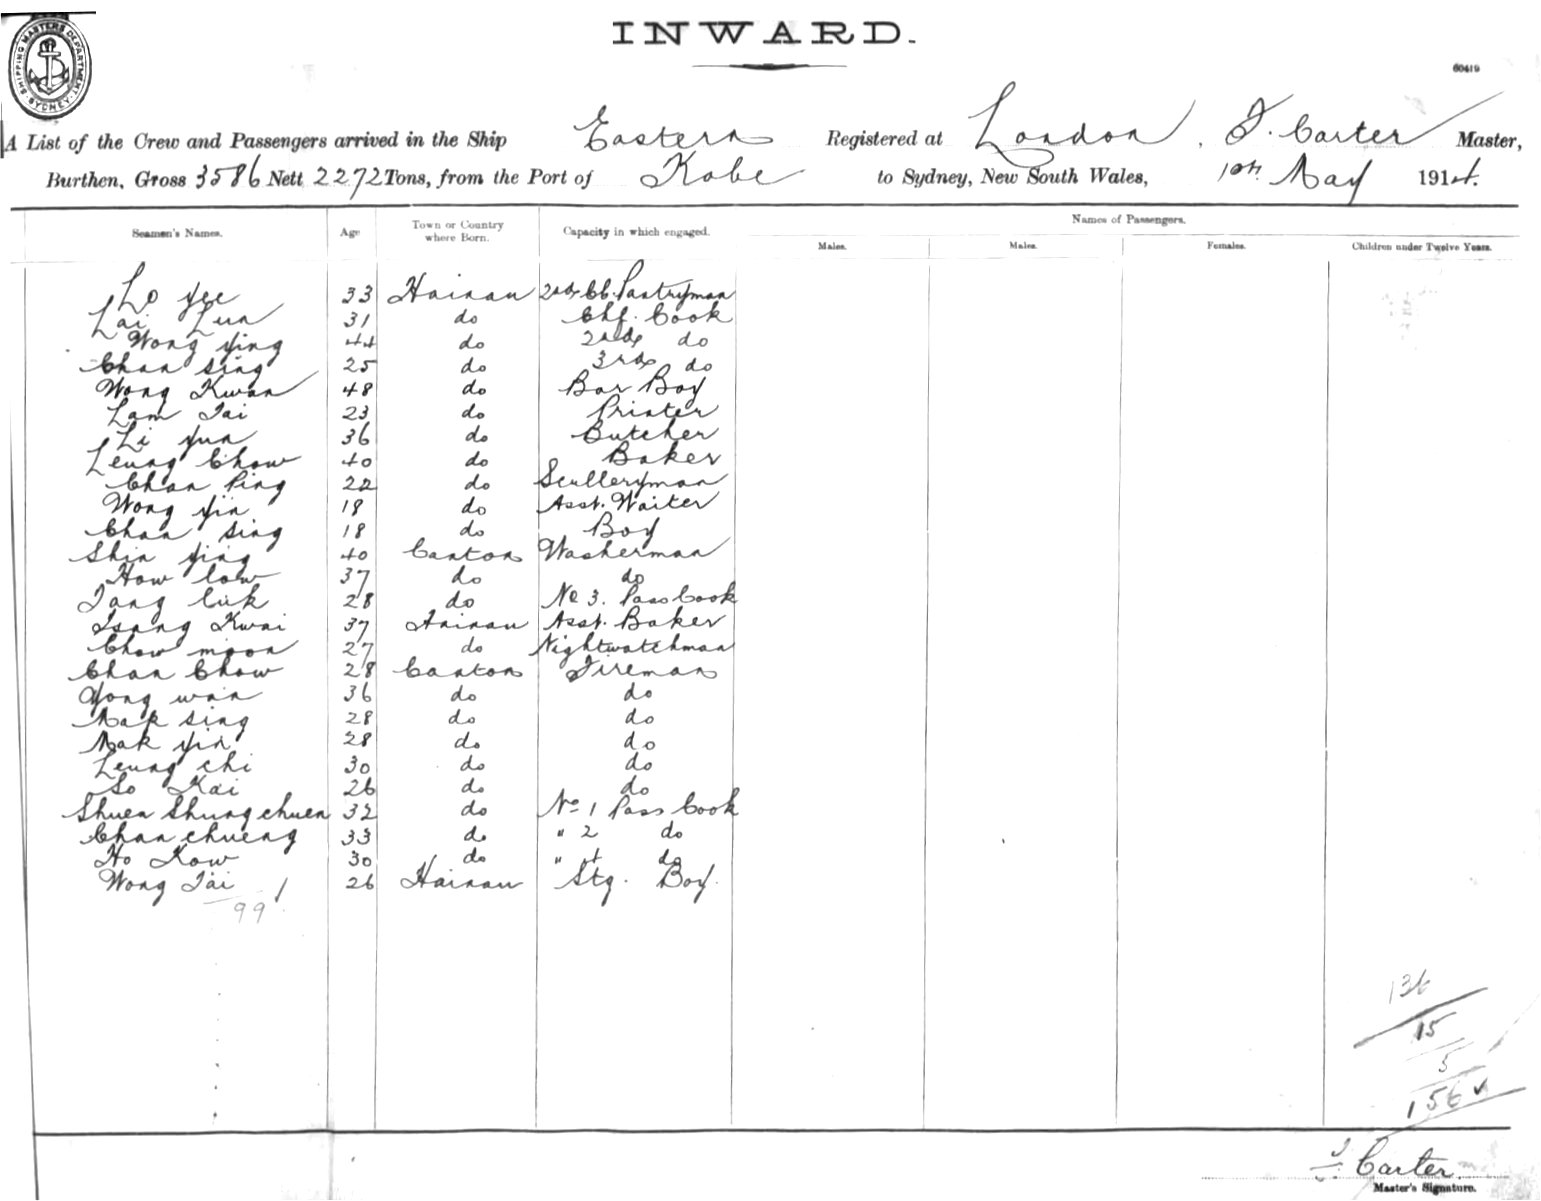 SHIPPING MASTERS DEPARTMENT SYDNEY
INWARD.
60419
A List of the Crew and Passengers arrived in the Ship Eastern Registered at London, J. Carter Master,
Burthen, Gross 3586 Nett 2272 Tons, from the Port of Kobe to Sydney, New South Wales, 10th May 1914.
Names of Passengers.
Seamen's Names. Age Town or Country where Born. Capacity in which engaged. Males. Males. Females. Children under Twelve Years.
Lo Yee 33 Hainan 2nd Cl. Pantryman
Lai Lun 31 do Chf. Cook
Wong Ying 44 do 2nd do
Chan Sing 25 do 3rd do
Wong Kwan 48 do Bar Boy
Lam Tai 23 do Printer
Li Yun 36 do Butcher
Leung Chow 40 do Baker
Chan Ping 22 do Sculleryman
Wong Yin 18 do Asst. Waiter
Chan Sing 18 do Boy
Shin Ying 40 Canton Washerman
How low 37 do do
Tang Luk 28 do No 3. Pass Cook
Tsang Kwai 37 Hainan Asst. Baker
Chow moon 27 do Nightwatchman
Chan Chow 28 Canton Fireman
Yong wan 36 do do
Mak sing 28 do do
Mak yin 28 do do
Leung chi 30 do do
So Kai 26 do do
Shuen Shung chuen 32 do No 1 Pass Cook
Chan chueng 33 do " 2 do
Ho Kow 30 do " 4 do
Wong Tai 26 Hainan Stg. Boy.
99
136
15
5
156
J Carter
Master's Signature.